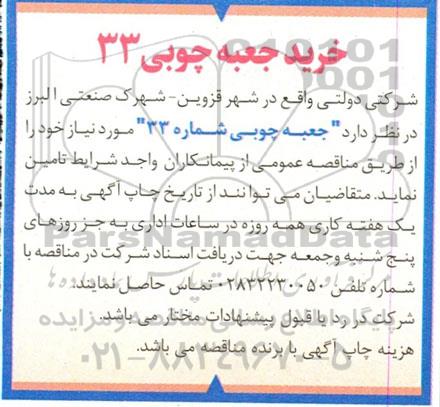 خرید جعبه چوبی ۳۳
شرکتی دولتی واقع در شهر قزوین- شهرک صنعتی البرز
در نظر دارد "جعبه چوبی شماره ۳۳" مورد نیاز خود را
از طریق مناقصه عمومی از پیمانکاران واجد شرایط تامین
نماید. متقاضیان می توانند از تاریخ چاپ آگهی به مدت
یک هفته کاری همه روزه در ساعات اداری به جز روزهای
پنج شنبه وجمعه جهت دریافت اسناد شرکت در مناقصه با
شماره تلفن ۰۲۸۳۲۲۳۰۰۵۰ تماس حاصل نمایند.
شرکت در رد یا قبول پیشنهادات مختار می باشد.
هزینه چاپ آگهی با برنده مناقصه می باشد.
ParsNamadData
۰۲۱-۸۸۳۴۹۶۷۰-۵